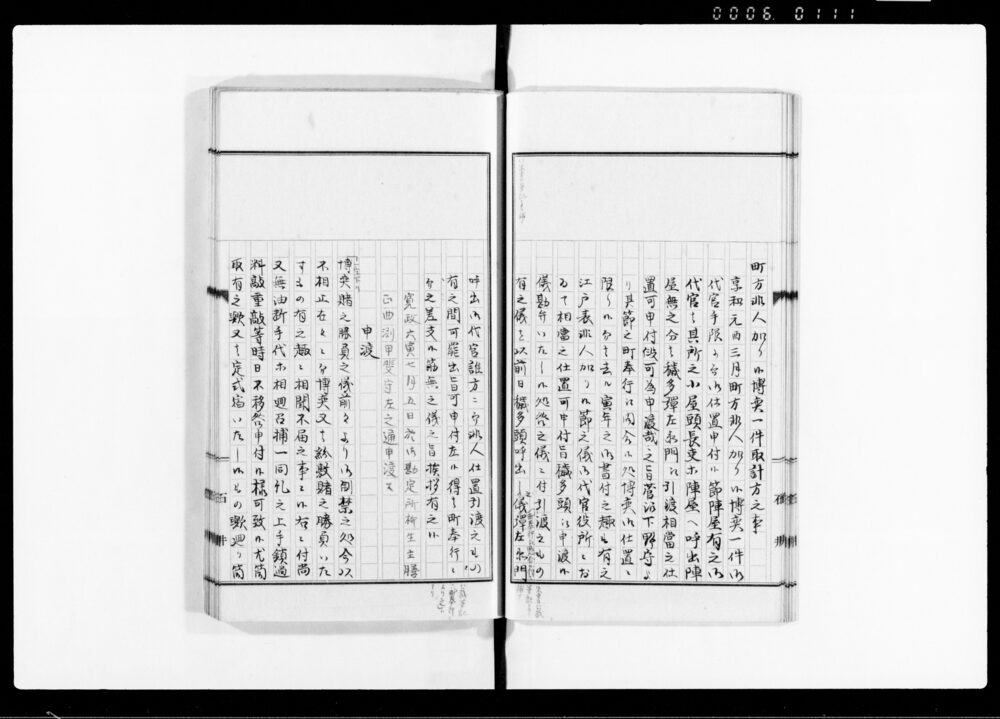 0006 0111
町方非人加り候博奕一件取計方之事
享和元酉三月町方非人加り候博奕一件御
代官手限ニ而御仕置申付候節陣屋有之御
代官は其所之小屋頭長吏ホ陣屋へ呼出陣
屋無之分は穢多弾左衛門江引渡相当之仕
置可申付段可為申渡哉之旨菅沼下野守より
り其節之町奉行江問合候処博奕御仕置
限り候ハヽ去ル寅年之御書付之趣も有之
江戸表非人加り候節之儀御代官役所ニお
ゐて相当之仕置可申付旨穢多頭江申渡候
儀勘弁いたし候処咎之儀ニ付引渡之もの
有之儀は以前日穢多頭呼出し儀弾左衛門
呼出御代官誰方ニ而非人仕置引渡之もの
有之間可罷出旨可申付左候得は町奉行ニ
而之差支候筋無之儀之旨挨拶有之候
寛政六寅七月五日於御勘定所柳生主膳
正曲渕甲斐守左之通申渡ス
申渡
博奕賭之勝負之儀前々より御制禁之処今以
不相止在々ニ而博奕又は紛敷賭之勝負いた
すもの有之趣ニ相聞不届之事ニ候右ニ付尚
又無油断手代ホ相廻召捕一同吟之上手鎖過
料敲重敲等時日不移咎申付候様可致候尤筒
取有之歟又は定式宿いたし候もの歟廻り筒